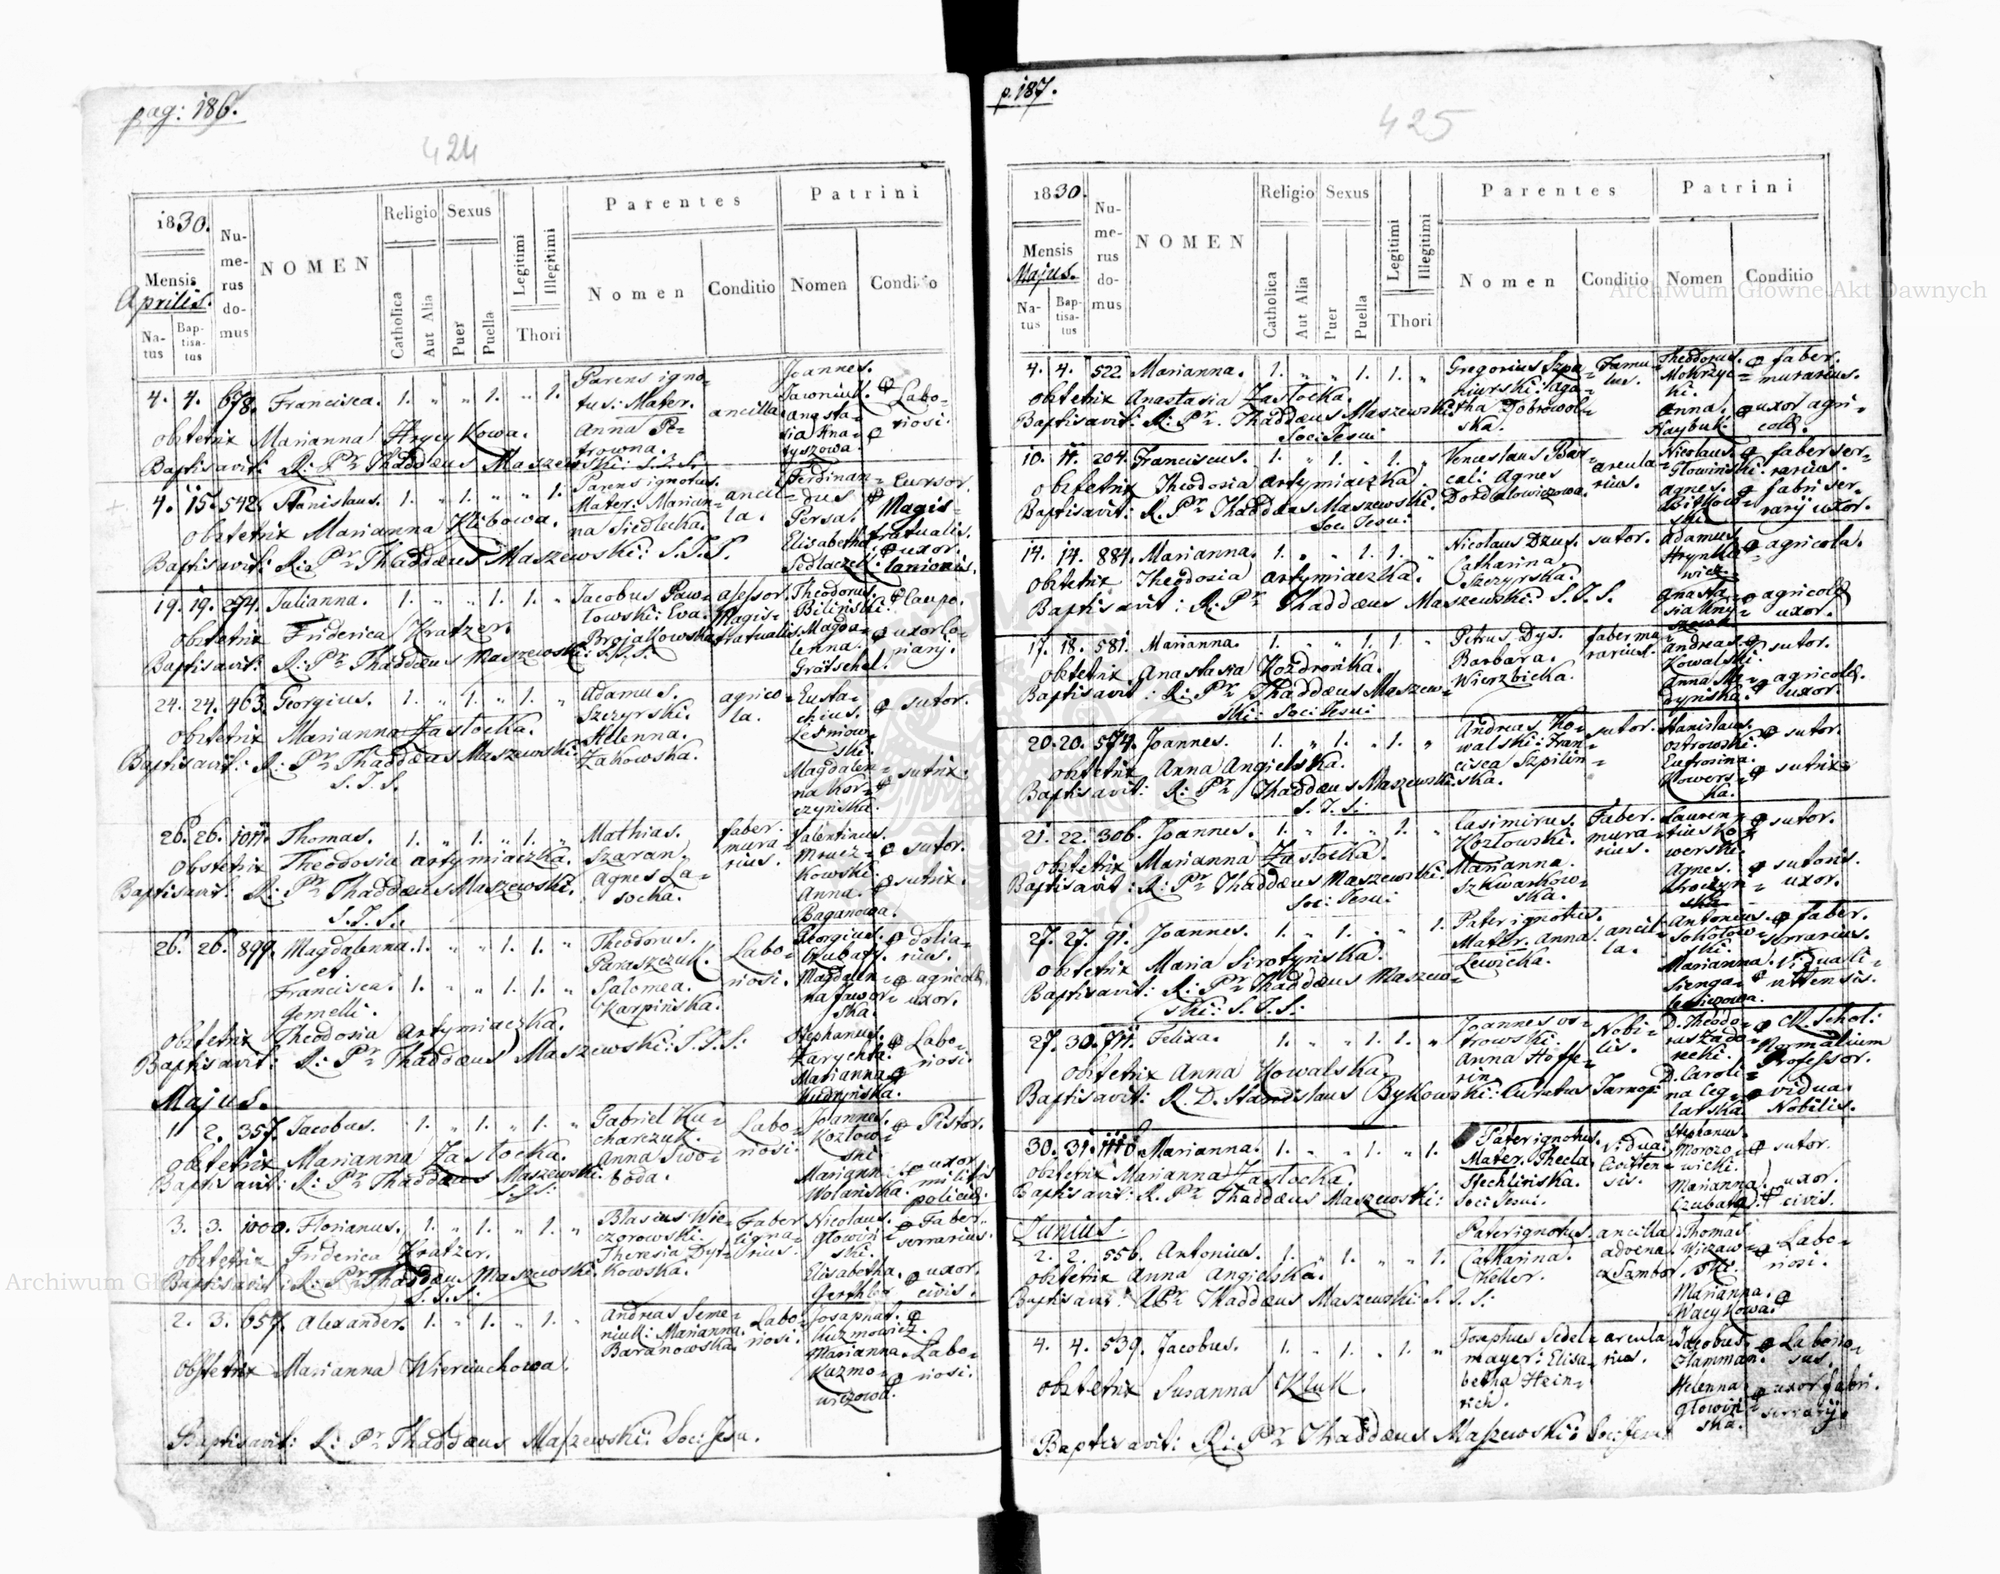 pag: 186.
424
1830.
Mensis
Aprilis.
Natus
Baptisatus
Numerus domus
NOMEN
Religio
Catholica
Aut Alia
Sexus
Puer
Puella
Legitimi
Illegitimi
Thori
Parentes
Nomen
Conditio
Patrini
Nomen
Conditio
4. 4. 678. Francisca. 1. " " 1. " 1. Parens ignotus: Mater. Anna Petrowna. ancilla Joannes. Jawoniuk. Anastasia Knatyszowa. Laboriosi.
obstetrix Marianna Hrycykowa.
Baptisavit: R: Pr Thaddæus Maszewski: S.J.S.
4. 15. 542. Stanislaus. 1. " 1. " " 1. Parens ignotus. Mater: Marianna Siedlecka. ancilla. Ferdinandus Persa. Elisabetha Sedlaczek Cursor Magistratualis. uxor lanionis.
obstetrix Marianna Klibowa.
Baptisavit: R: Pr Thaddæus Maszewski: S.J.S.
19. 19. 274. Julianna. 1. " " 1. 1. " Jacobus Pawłowski: Eva Brojakowska assessor Magistratualis. Theodorus. Biliński. Magdalenna. Gratschel. Caupo. uxor
obstetrix Friderica Kratzer.
Baptisavit: R: Pr Thaddæus Maszewski: S.J.S.
24. 24. 463. Georgius. 1. " 1. " 1. " Adamus. Szczyrski. Helenna. Żakowska. agricola. Eustachius. Leśniowski. Magdalenna Korczyńska. sutor. sutrix.
obstetrix Marianna Zastocka.
Baptisavit: R: Pr Thaddæus Maszewski:
S.J.S.
26. 26. 1011. Thomas. 1. " 1. " 1. " Mathias. Szaran. Agnes Lasocka. faber murarius. Valentinus. Mruczkowski. Anna. Baganowa. sutor. sutrix.
obstetrix Theodosia Artymiaczka.
Baptisavit: R: Pr Thaddæus Maszewski.
S.J.S.
26. 26. 899. Magdalenna. 1. " " 1. 1. " Theodorus. Paraszczuk. Laboriosi. Georgius. Czubaty. doliarius.
et
Francisca. 1. " " 1. 1. " Salomea. Karpińska. Magdalenna Jaworska. agricolæ uxor.
gemelli.
obstetrix Theodosia Artymiaczka. Stephanus. Harychta. Marianna Kudryńska. Laboriosi.
Baptisavit: R: Pr Thaddæus Maszewski: S.J.S.
Majus.
1 2. 357. Jacobus. 1. " 1. " 1. " Gabriel Kucharczuk. Anna Swoboda. Laboriosi. Joannes. Kozłowski Marianna Wolańska. Pistor. uxor militis policiæ.
obstetrix Marianna Zastocka.
Baptisavit: R: Pr Thaddæus Maszewski.
S.J.S.
3. 3. 1000. Florianus. 1. " 1. " 1. " Blasius Wieczorowski. Theresia Dytkowska. Faber lignarius. Nicolaus. Głowiński. Elisabetha. Gerthler Faber serrarius. uxor civis.
obstetrix Friderica Kratzer.
Baptisavit: R: Pr Thaddæus Maszewski.
S.J.S.
2. 3. 657. Alexander. 1. " 1. " 1. " Andreas Semeniuk: Marianna. Baranowska. Laboriosi. Josaphat. Kuzmowicz. Marianna. Kuzmowiczowa. Laboriosi.
Obstetrix Marianna Wierciuchowa.
Baptisavit: R: Pr Thaddæus Maszewski: Soci: Jesu.
p. 187.
425
1830.
Mensis
Majus.
Natus
Baptisatus
Numerus domus
NOMEN
Religio
Catholica
Aut Alia
Sexus
Puer
Puella
Legitimi
Illegitimi
Thori
Parentes
Nomen
Conditio
Patrini
Nomen
Conditio
4. 4. 522. Marianna. 1. " " 1. 1. " Gregorius Szpakiurski: Agatha Dobrowolska. Famulus. Theodorus. Mokrzycki. Anna. Haybuk. faber murarius. uxor agricolæ.
obstetrix Anastasia Zastocka.
Baptisavit: R: Pr. Thaddæus Maszewski:
Soci: Jesu
10. 11. 204. Franciscus. 1. " 1. " 1. " Venceslaus Barcal: Agnes Dondalowiczowa. arcularius. Nicolaus. Głowiński. Agnes. Witkowski faber serrarius. fabri serrarij uxor.
obstetrix Theodosia Artymiaczka.
Baptisavit: R: Pr Thaddæus Maszewski:
Soci: Jesu:
14. 14. 884. Marianna. 1. " " 1. 1. " Nicolaus Dzus. Catharina Szczyrska. sutor. Adamus. Hrynkiewicz. Anastasia agricola. agricolæ uxor.
obstetrix Theodosia Artymiaczka.
Baptisavit: R: Pr Thaddæus Maszewski: S.J.S.
17. 18. 581. Marianna. 1. " " 1. 1. " Petrus Dys. Barbara. Wierzbicka. faber murarius. Andreas. Kowalski. Anna sutor. agricolæ uxor.
obstetrix Anastasia Kozdrońka.
Baptisavit: R: Pr Thaddæus Maszewski: Soci: Jesu:
20. 20. 574. Joannes. 1. " 1. " 1. " Andreas Kowalski: Francisca Szpilińska. sutor. Stanislaus. Ostrowski. Eufrosina. sutor. sutrix
obstetrix Anna Angielska.
Baptisavit: R: Pr Thaddæus Maszewski.
S.J.S:
21. 22. 306. Joannes. 1. " 1. " 1. " Casimirus. Kozłowski. Marianna. Szkwarkowska. Faber. murarius. Laurentius Kowerski. Agnes. sutor. sutoris. uxor.
obstetrix Marianna Zastocka.
Baptisavit: R: Pr Thaddæus Maszewski:
Soci: Jesu:
27. 27. 91. Joannes. 1. " 1. " " 1. Pater ignotus. Mater. Anna. Lewicka. ancilla. Antonius. Sokołowski. Marianna. faber. serrarius. vidua
obstetrix Maria Sirotyńska.
Baptisavit: R: Pr Thaddæus Maszewski: S.J.S:
27. 30. 711. Felixa. 1. " " 1. 1. " Joannes Ostrowski. Anna Nobilis. D. Theodorus Zadorecki. D. Carolina Ceglarska. CR. Schol: Normalium Professor. vidua Nobilis.
obstetrix Anna Kowalska.
Baptisavit: R. D. Stanislaus Bytkowski: Curatus Tarnop:
30. 31. Marianna. 1. " " 1. " 1. Pater ignotus. Mater. Thecla Stechlińska. vidua Stephanus. Morozowicki. Marianna. Czubata. sutor. uxor. civis.
obstetrix Marianna Zastocka.
Baptisavit: R: Pr Thaddæus Maszewski: Soci: Jesu:
Junius.
2. 2. 556. Antonius. 1. " 1. " " 1. Pater ignotus. Catharina. Keller. ancilla advena ex Sambor. Thomas Marianna. Wacykowa. Laboriosi.
obstetrix Anna Angielska.
Baptisavit: R: Pr Thaddæus Maszewski: S.J.S:
4. 4. 539. Jacobus. 1. " 1. " 1. " Josephus Sedelmayer: Elisabetha Heinrich. arcularius. Jacobus. Hamman. Helenna. Głowińska. Laboriosus. uxor fabri. serrarij.
obstetrix Susanna Kluk.
Baptisavit: R: Pr Thaddæus Maszewski: Soci: Jesu
Archiwum Główne Akt Dawnych